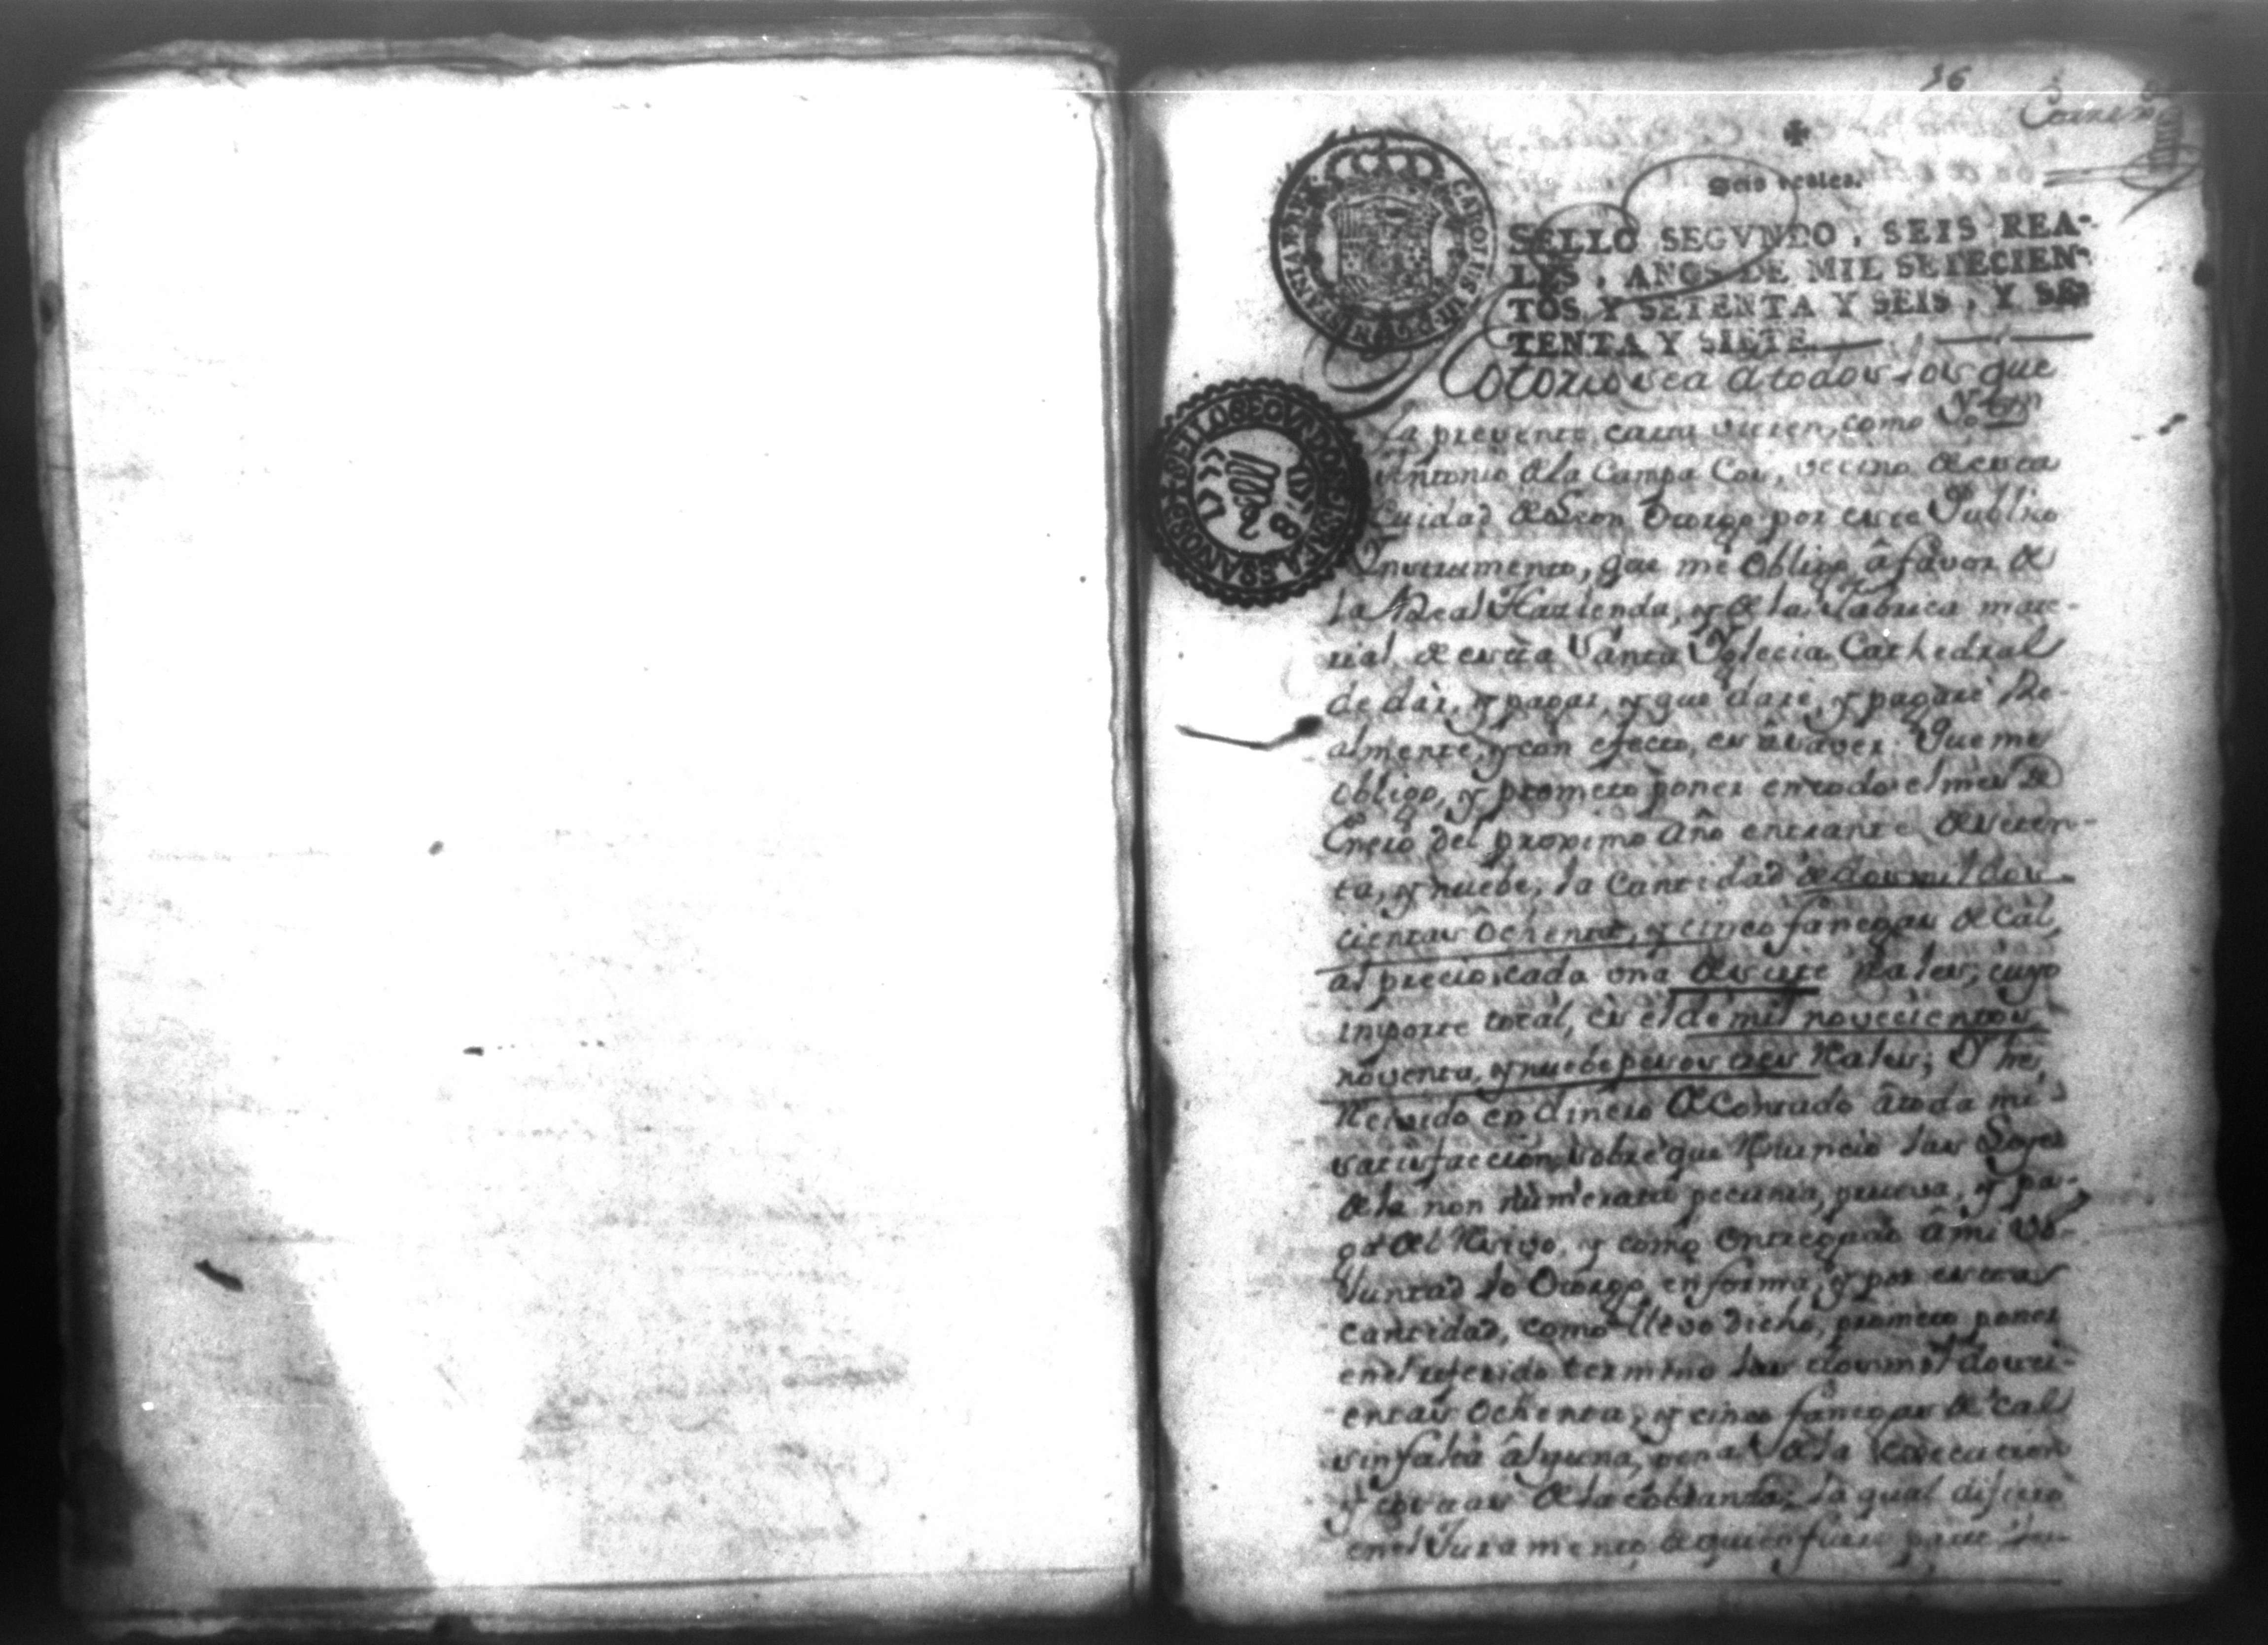 16
Seis reales.
SELLO SEGVNDO, SEIS REA-
LES, AÑOS DE MIL SETECIEN-
TOS Y SETENTA Y SEIS, Y SE-
TENTA Y SIETE.
Notorio sea a todos los que
la presente carta vieren, como Yo
Antonio de la Campa Cos, vecino de esta
Ciudad de Leon Otorgo por este Publico
Instrumento, que me obligo, â favor de
la Real Hazienda, y de la fabrica mate-
rial de esta Santa Yglecia Cathedral
de dar, y pagar, y que daré, y pagaré Re-
almente, y con efecto, es â saver: Que me
obligo, y prometo poner en todo el mes de
Enero del proximo año entrante de seten-
ta, y nuebe, la Cantidad de dos mil dos-
cientas ochenta, y cinco fanegas de Cal,
al precio cada una de siete Rales, cuyo
importe total, es el de mil novecientos
noventa, y nuebe pesos tres Rales; Y he
Recivido en dinero de Contado â toda mi
satisfaccion, sobre que Renuncio las Leyes
de la non numerata pecunia, prueva, y pa-
ga del Recivo, y como entregado â mi vo-
luntad lo Otorgo, en forma, y por esta
cantidad, como llevo dicho, prometo poner
en el referido termino las dos mil dosci-
entas ochenta, y cinco fanegas de cal
sin falta âlguna, pena de la execucion
y costas de la cobranza; la qual difiero
en el Juramento de quien fuere parte